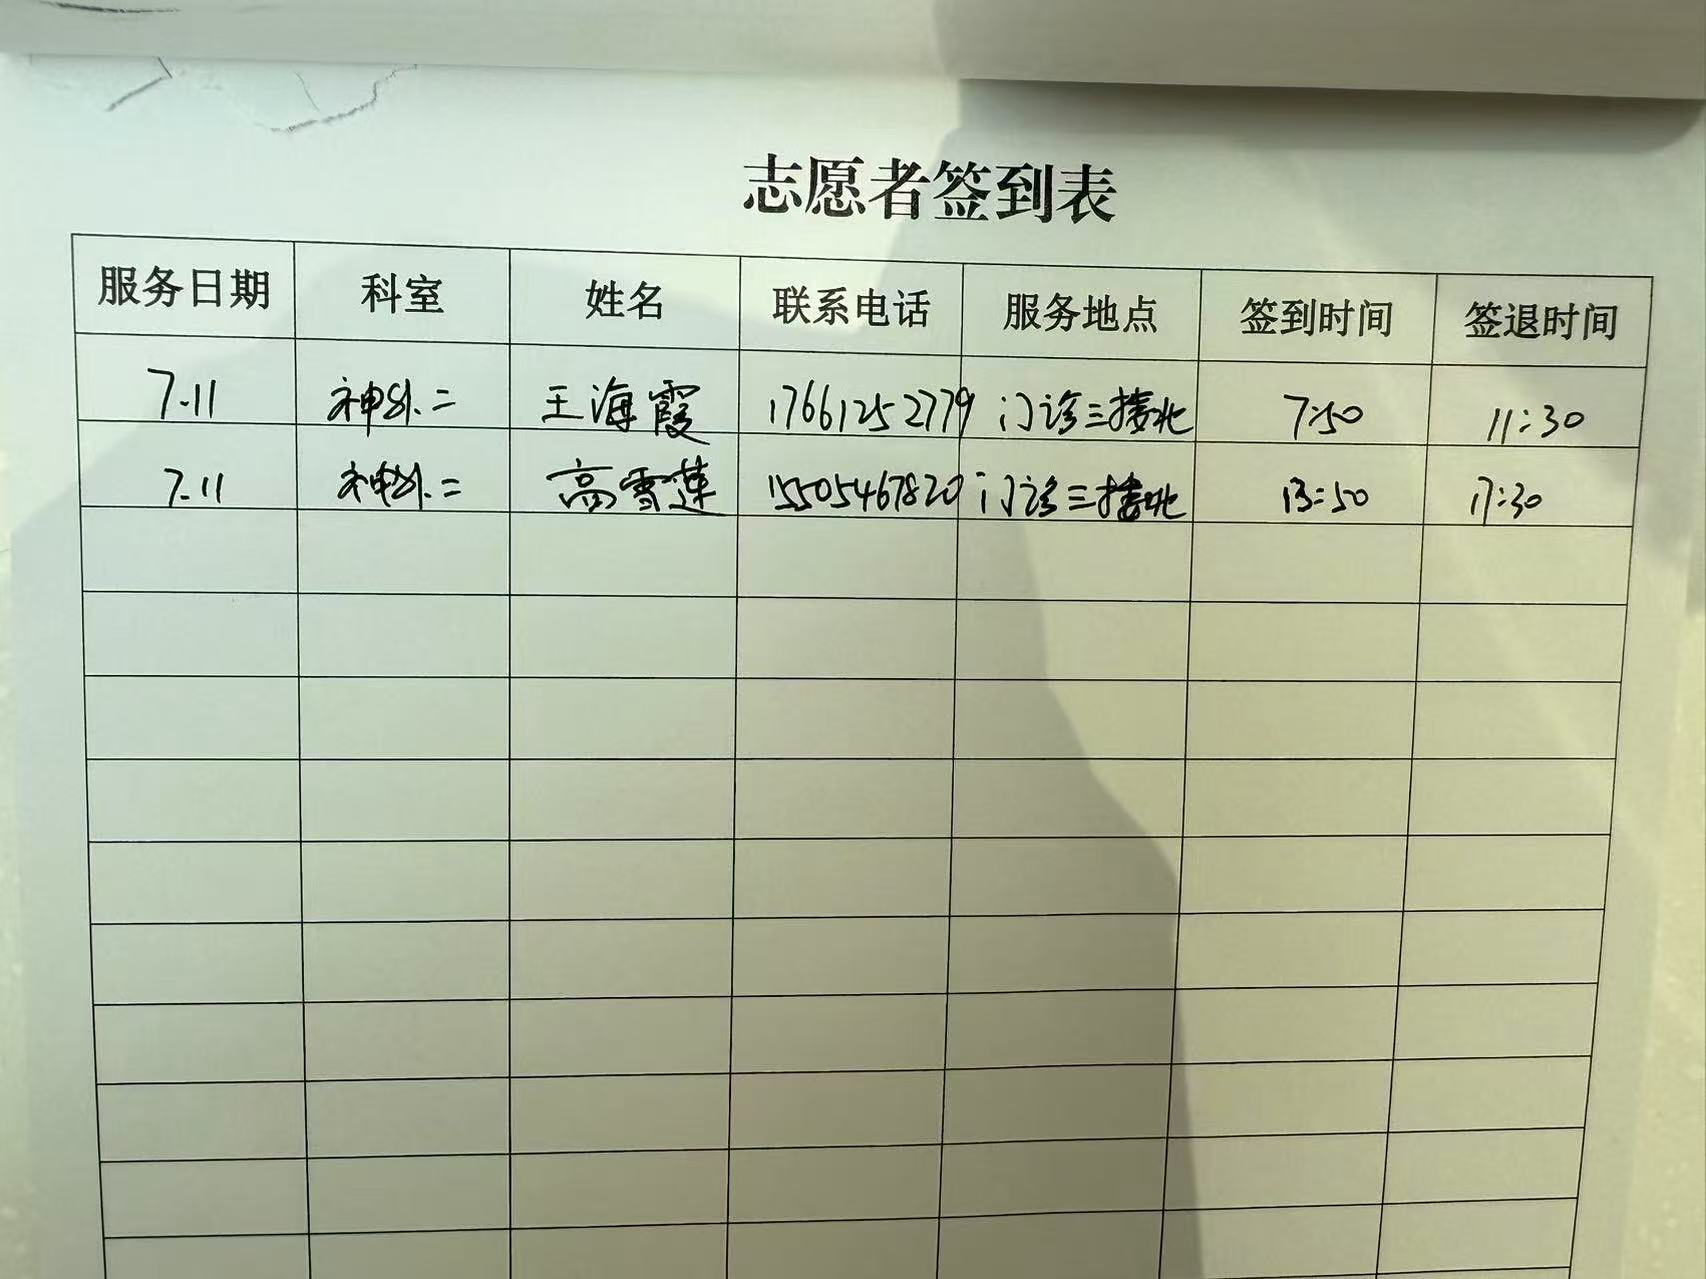 志愿者签到表
服务日期 科室 姓名 联系电话 服务地点 签到时间 签退时间
7.11 神外二 王海霞 17661252779 门诊三楼北 7:50 11:30
7.11 神外二 高雪莲 15505467820 门诊三楼北 13:50 17:30